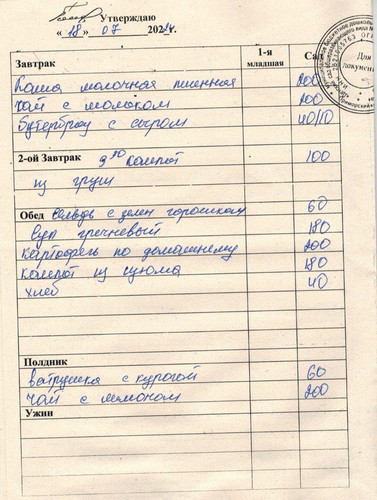 Утверждаю
« 18 » 07 2024г.
1-я младшая Сад
Завтрак
Каша молочная пшенная 200
Чай с молоком 200
Бутерброд с сыром 40/10
2-ой Завтрак 9³⁰ Компот 100
из груш
Обед Сельдь с зелен горошком 60
Суп гречневый 180
Картофель по домашнему 200
Компот из изюма 180
Хлеб 40
Полдник
Ватрушка с курагой 60
Чай с лимоном 200
Ужин
Для
документов